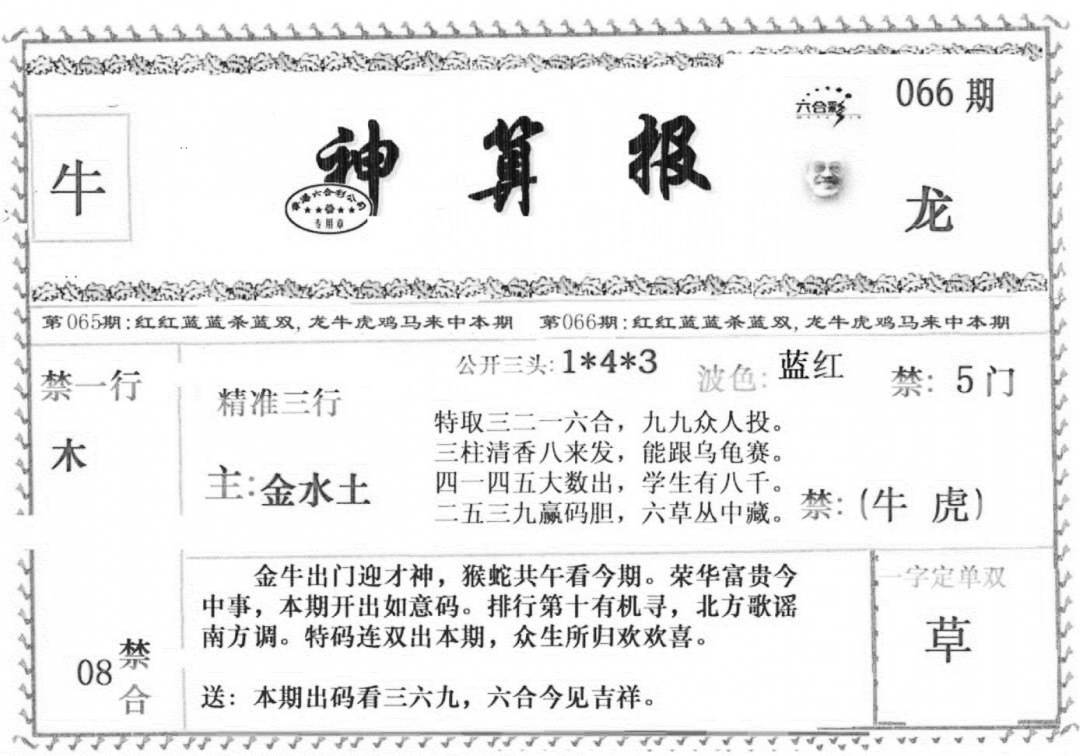 066 期
六合彩
牛
神算报
香港六合彩公司
专用章
龙
第065期:红红蓝蓝杀蓝双,龙牛虎鸡马来中本期 第066期:红红蓝蓝杀蓝双,龙牛虎鸡马来中本期
禁一行
木
精准三行
主:金水土
公开三头:1*4*3
波色:蓝红
禁: 5门
特取三二一六合，九九众人投。
三柱清香八来发，能跟乌龟赛。
四一四五大数出，学生有八千。
二五三九赢码胆，六草丛中藏。
禁:(牛 虎)
08
禁
合
金牛出门迎才神，猴蛇共午看今期。荣华富贵今
中事，本期开出如意码。排行第十有机寻，北方歌谣
南方调。特码连双出本期，众生所归欢欢喜。
送：本期出码看三六九，六合今见吉祥。
一字定单双
草